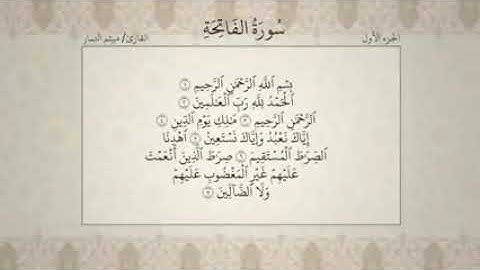 الجزء الأول
سُورَةُ الفَاتِحَةِ
القارئ/ ميثم التمار
بِسْمِ ٱللَّهِ ٱلرَّحْمَٰنِ ٱلرَّحِيمِ ١
ٱلْحَمْدُ لِلَّهِ رَبِّ ٱلْعَٰلَمِينَ ٢
ٱلرَّحْمَٰنِ ٱلرَّحِيمِ ٣ مَٰلِكِ يَوْمِ ٱلدِّينِ ٤
إِيَّاكَ نَعْبُدُ وَإِيَّاكَ نَسْتَعِينُ ٥ ٱهْدِنَا
ٱلصِّرَٰطَ ٱلْمُسْتَقِيمَ ٦ صِرَٰطَ ٱلَّذِينَ أَنْعَمْتَ
عَلَيْهِمْ غَيْرِ ٱلْمَغْضُوبِ عَلَيْهِمْ
وَلَا ٱلضَّآلِّينَ ٧